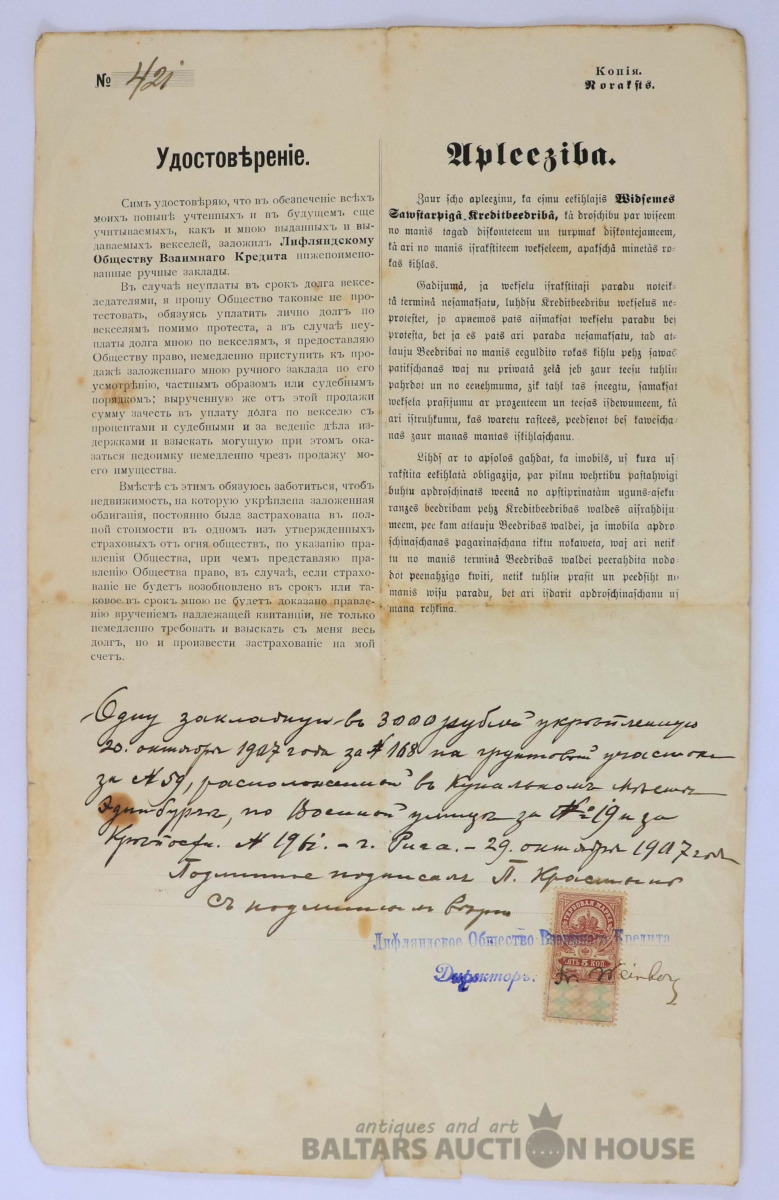 № 421
Копія.
Noraksts.
Удостовѣреніе.
Симъ удостовѣряю, что въ обезпеченіе всѣхъ
моихъ понынѣ учтенныхъ и въ будущемъ еще
учитываемыхъ, какъ и мною выданныхъ и вы-
даваемыхъ векселей, заложилъ Лифляндскому
Обществу Взаимнаго Кредита нижепоимено-
ванные ручные заклады.
Въ случаѣ неуплаты въ срокъ долга вексе-
ледателями, я прошу Общество таковые не про-
тестовать, обязуясь уплатить лично долгъ по
векселямъ помимо протеста, а въ случаѣ неу-
платы долга мною по векселямъ, я предоставляю
Обществу право, немедленно приступить къ про-
дажѣ заложеннаго мною ручного заклада по его
усмотрѣнію, частнымъ образомъ или судебнымъ
порядкомъ; вырученную же отъ этой продажи
сумму зачесть въ уплату долга по векселю съ
процентами и судебными и за веденіе дѣла из-
держками и взыскать могущую при этомъ ока-
заться недоимку немедленно чрезъ продажу мо-
его имущества.
Вмѣстѣ съ этимъ обязуюсь заботиться, чтобъ
недвижимость, на которую укрѣплена заложенная
облигація, постоянно была застрахована въ пол-
ной стоимости въ одномъ изъ утвержденныхъ
страховыхъ отъ огня обществъ, по указанію пра-
вленія Общества, при чемъ представляю пра-
вленію Общества право, въ случаѣ, если страхо-
ваніе не будетъ возобновлено въ срокъ или та-
ковое въ срокъ мною не будетъ доказано правле-
нію врученіемъ надлежащей квитанціи, не только
немедленно требовать и взыскать съ меня весь
долгъ, но и произвести застрахованіе на мой
счетъ.
Apleeziba.
Zaur scho apleezinu, ka esmu eekihlajis Widsemes
Sawstarpigâ Kreditbeedribâ, kâ droschibu par wiseem
no manis tagad diskonteteem un turpmak diskontejameem,
kâ ari no manis israkstiteem wekseleem, apakschâ minetâs ro-
kas kihlas.
Gadijumâ, ja wekselu israkstitaji paradu noteik-
tâ terminâ nesamaksatu, luhdsu Kreditbeedribu wekselus ne-
protestet, jo apnemos pats aismaksat wekselu paradu bes
protesta, bet ja es pats ari parada nesamaksatu, tad at-
lauju Beedribai no manis eegulditо rokas kihlu pehz sawas
patikschanas waj nu priwatâ zelâ jeb zaur teesu tuhlin
pahrdot un no eenehmuma, zik tahl tas sneegtu, samaksat
weksela prasijumu ar prozenteem un teesas isdewumeem, kâ
ari istruhkumu, kas waretu rastees, peedsenot bes kawescha-
nas zaur manas mantas iskihlaschanu.
Lihds ar to apsolos gahdat, ka imobils, us kura us-
rakstita eekihlatâ obligazija, par pilnu wehrtibu pastahwigi
buhtu apdroschinats weenâ no apstiprinatâm uguns-aseku-
ranzes beedribam pehz Kreditbeedribas waldes aisrahdiju-
meem, pee kam atlauju Beedribas waldei, ja imobila apdro-
schinaschanas pagarinaschana tiktu nokaweta, waj ari netik-
tu no manis terminâ Beedribas waldei peerahdita nodo-
dot peenahzigo kwiti, netik tuhlin prasit un peedsiht no
manis wisu paradu, bet ari isdarit apdroschinaschanu us
mana rehkina.
Одну закладную въ 3000 рублей укрѣпленную
20. октября 1907 года за № 168 на грунтовой участокъ
за № 59, расположенной въ Купальномъ мѣстѣ
Эдинбургъ, по Военной улицѣ за № 19 и за
Крѣпостн. № 1961. – г. Рига. – 29. октября 1907 года
Подлинное подписалъ П. Крастынь
Съ подлиннымъ вѣрно
Лифляндское Общество Взаимнаго Кредита
Директоръ: Fr. Weinberg
ГЕРБОВАЯ МАРКА
ПЯТЬ 5 КОП.
antiques and art
BALTARS AUCTION HOUSE